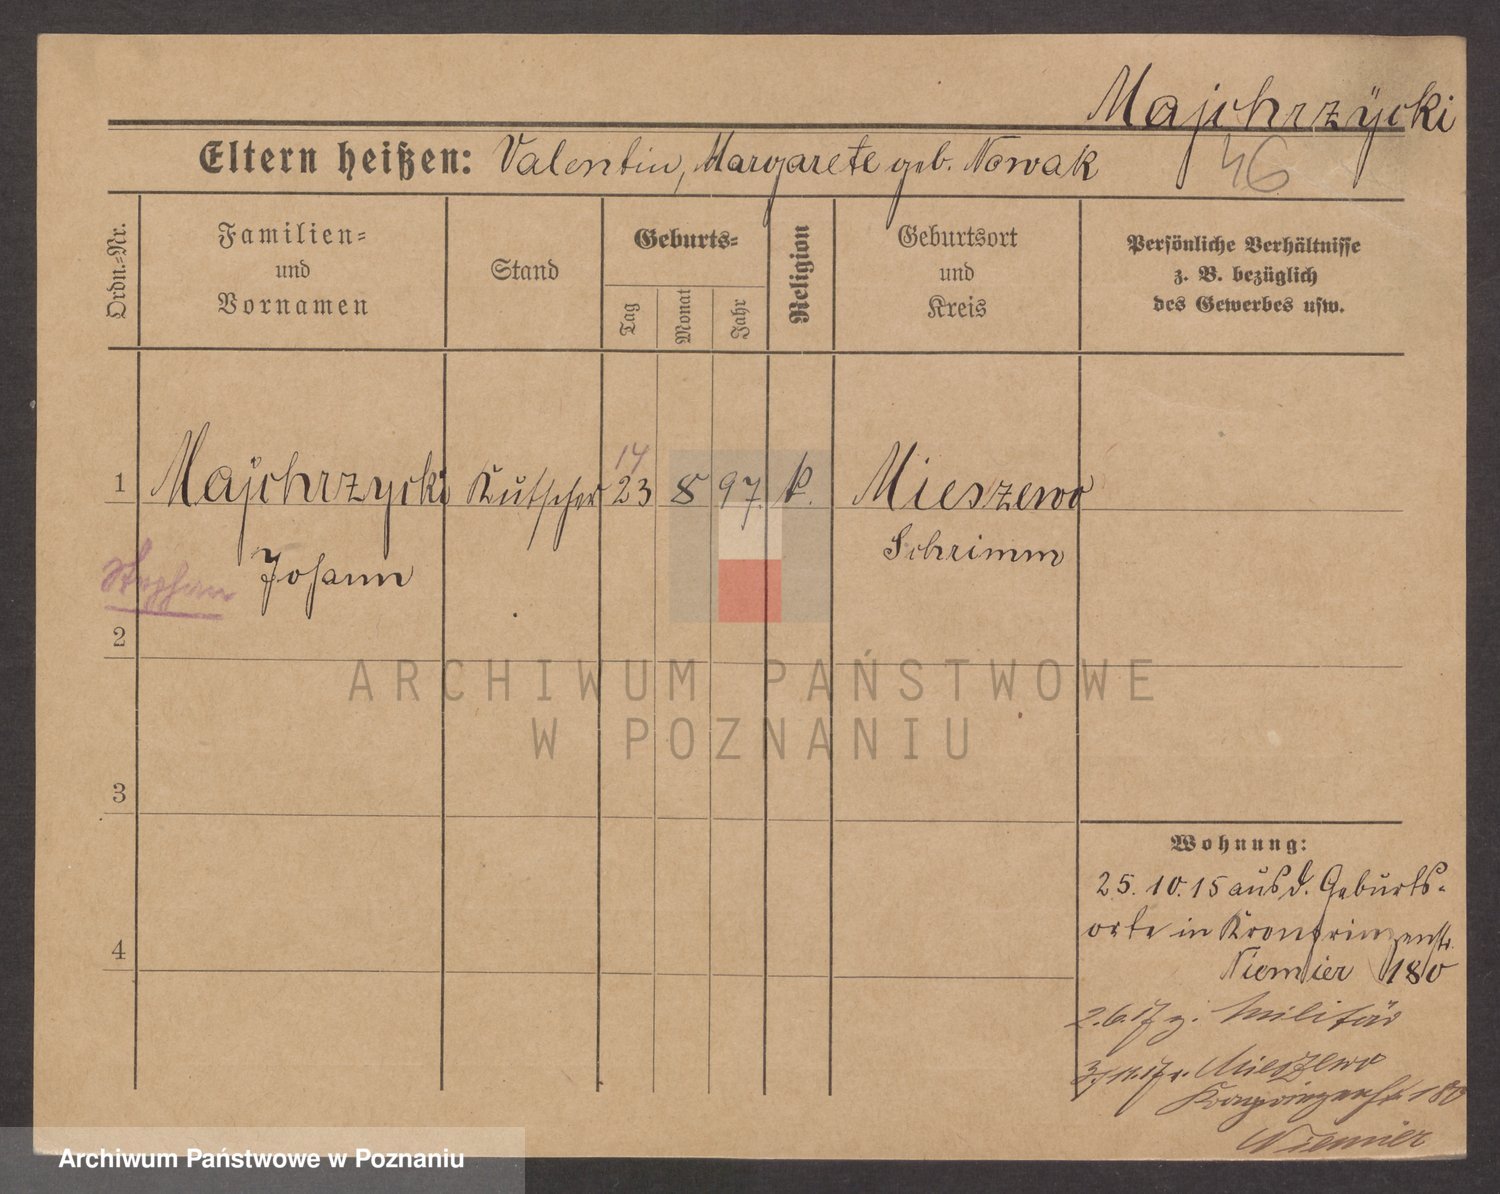 Majchrzycki
46
Eltern heißen: Valentin, Margarete geb. Nowak
Ordn.=Nr.
Familien=
und
Vornamen
Stand
Geburts=
Tag
Monat
Jahr
Religion
Geburtsort
und
Kreis
Persönliche Verhältnisse
z. B. bezüglich
des Gewerbes usw.
14
1 Majchrzycki Kutscher 23 8 97 k. Mieszewo
Johann Schrimm
Stephan
2
ARCHIWUM PAŃSTWOWE
W POZNANIU
3
Wohnung:
25. 10. 15 aus d. Geburts-
orte in Kronprinzenstr.
Niemier 180
4
2.6.17 z. Militär
3/11.17 v. Mieszewo
Kronprinzenstr. 180
Niemier
Archiwum Państwowe w Poznaniu